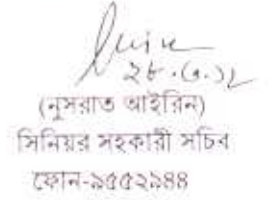 ২৮.০১.১২
(নুসরাত আইরিন)
সিনিয়র সহকারী সচিব
ফোন-৯৫৫২৯৪৪